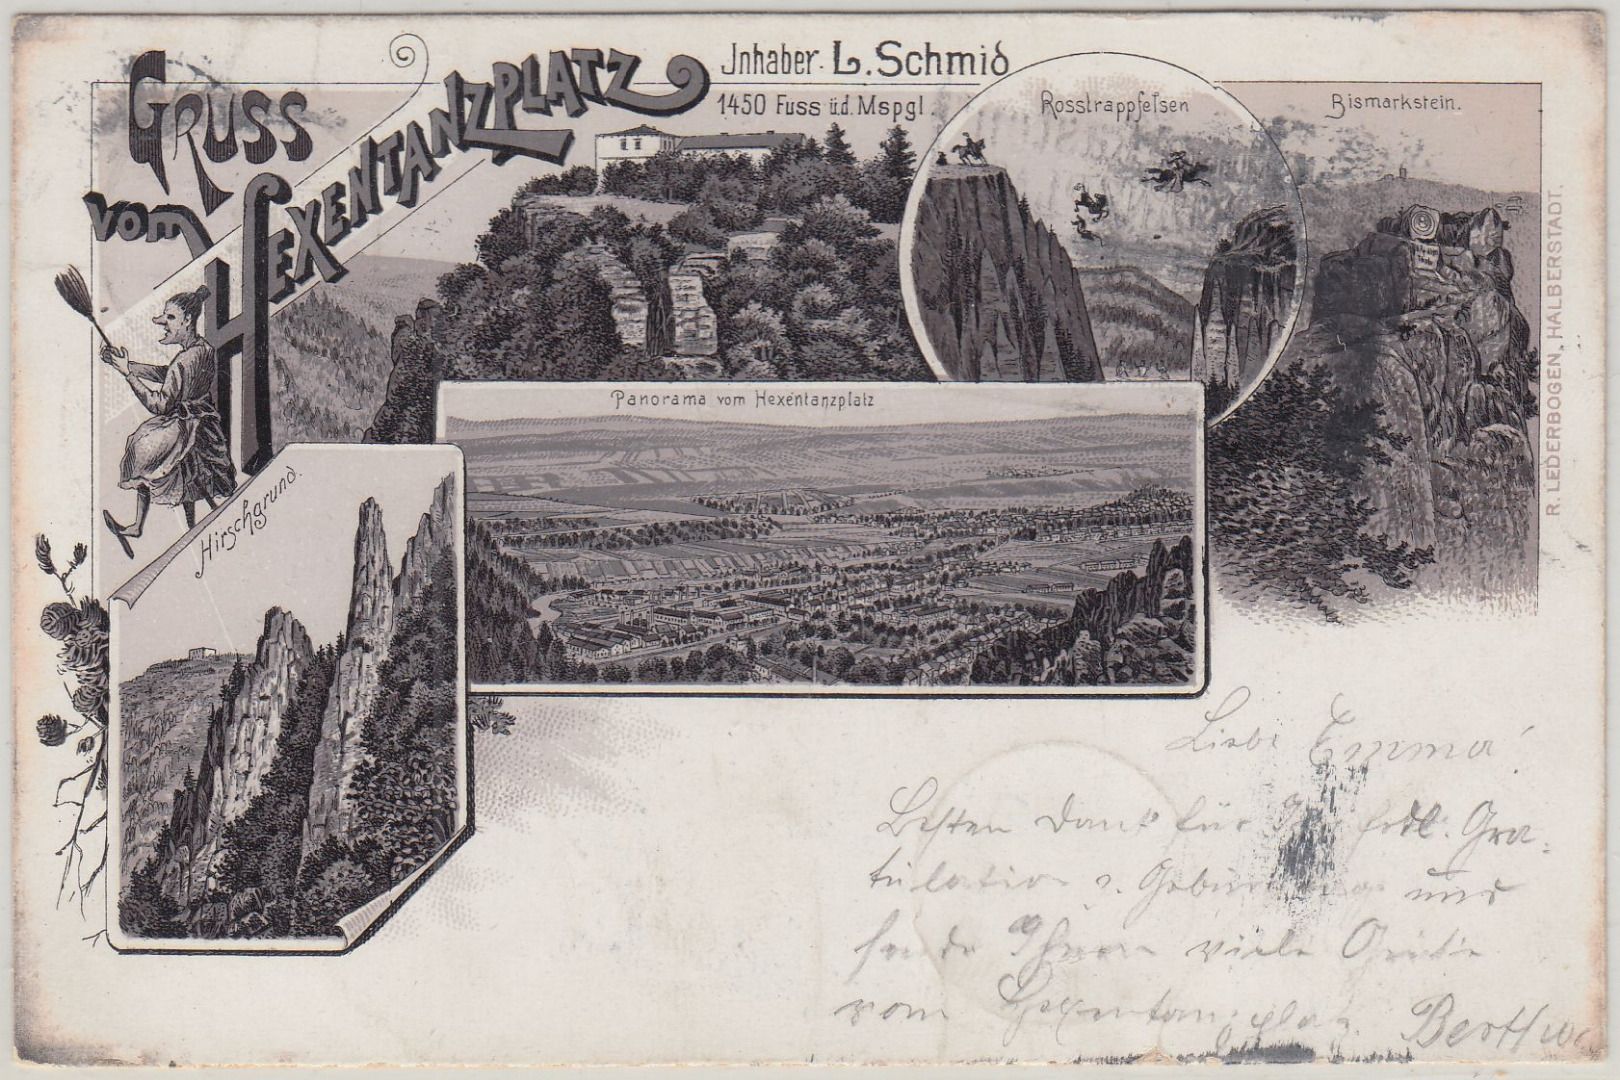 GRUSS
VOM HEXENTANZPLATZ
Jnhaber. L. Schmid
1450 Fuss üd. Mspgl.
Rosstrappfelsen
Bismarkstein.
Panorama vom Hexentanzplatz
Hirschgrund.
R. LEDERBOGEN, HALBERSTADT.
Liebe Emma!
Besten Dank für Ihre frdl. Gra-
tulation z. Geburtstage und
sende Ihnen viele Grüße
vom Hexentanzplatz. Bertha